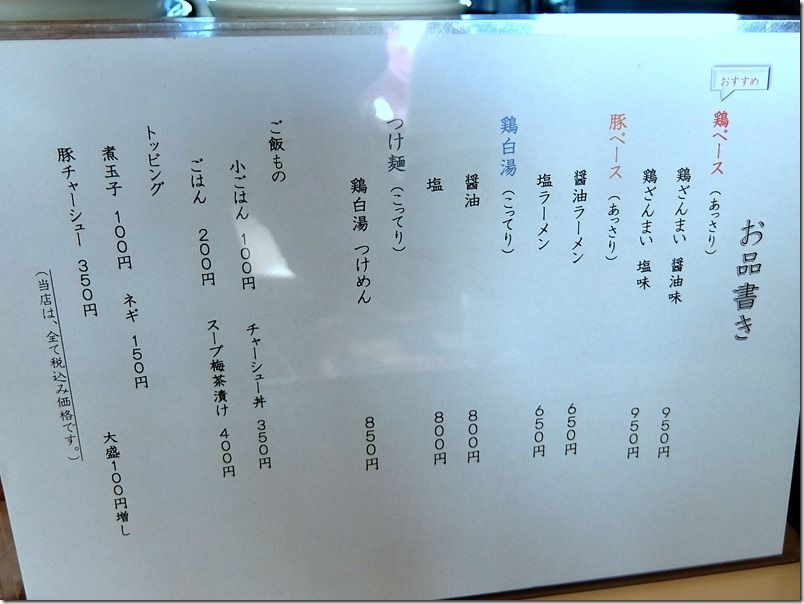 お品書き
おすすめ
鶏ベース（あっさり）
鶏ざんまい 醤油味 950円
鶏ざんまい 塩味 950円
豚ベース（あっさり）
醤油ラーメン 650円
塩ラーメン 650円
鶏白湯（こってり）
醤油 800円
塩 800円
つけ麺（こってり）
鶏白湯 つけめん 850円
ご飯もの
小ごはん 100円 チャーシュー丼 350円
ごはん 200円 スープ梅茶漬け 400円
トッピング
煮玉子 100円 ネギ 150円 大盛100円増し
豚チャーシュー 350円
（当店は、全て税込み価格です。）